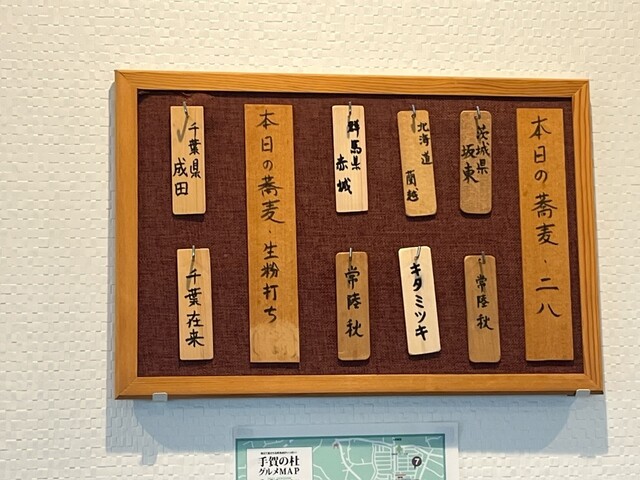 本日の蕎麦・二八
茨城県
坂東
常陸秋
北海道
蘭越
キタミツキ
群馬県
赤城
常陸秋
本日の蕎麦・生粉打ち
千葉県
成田
千葉在来
手賀の杜
グルメMAP
7